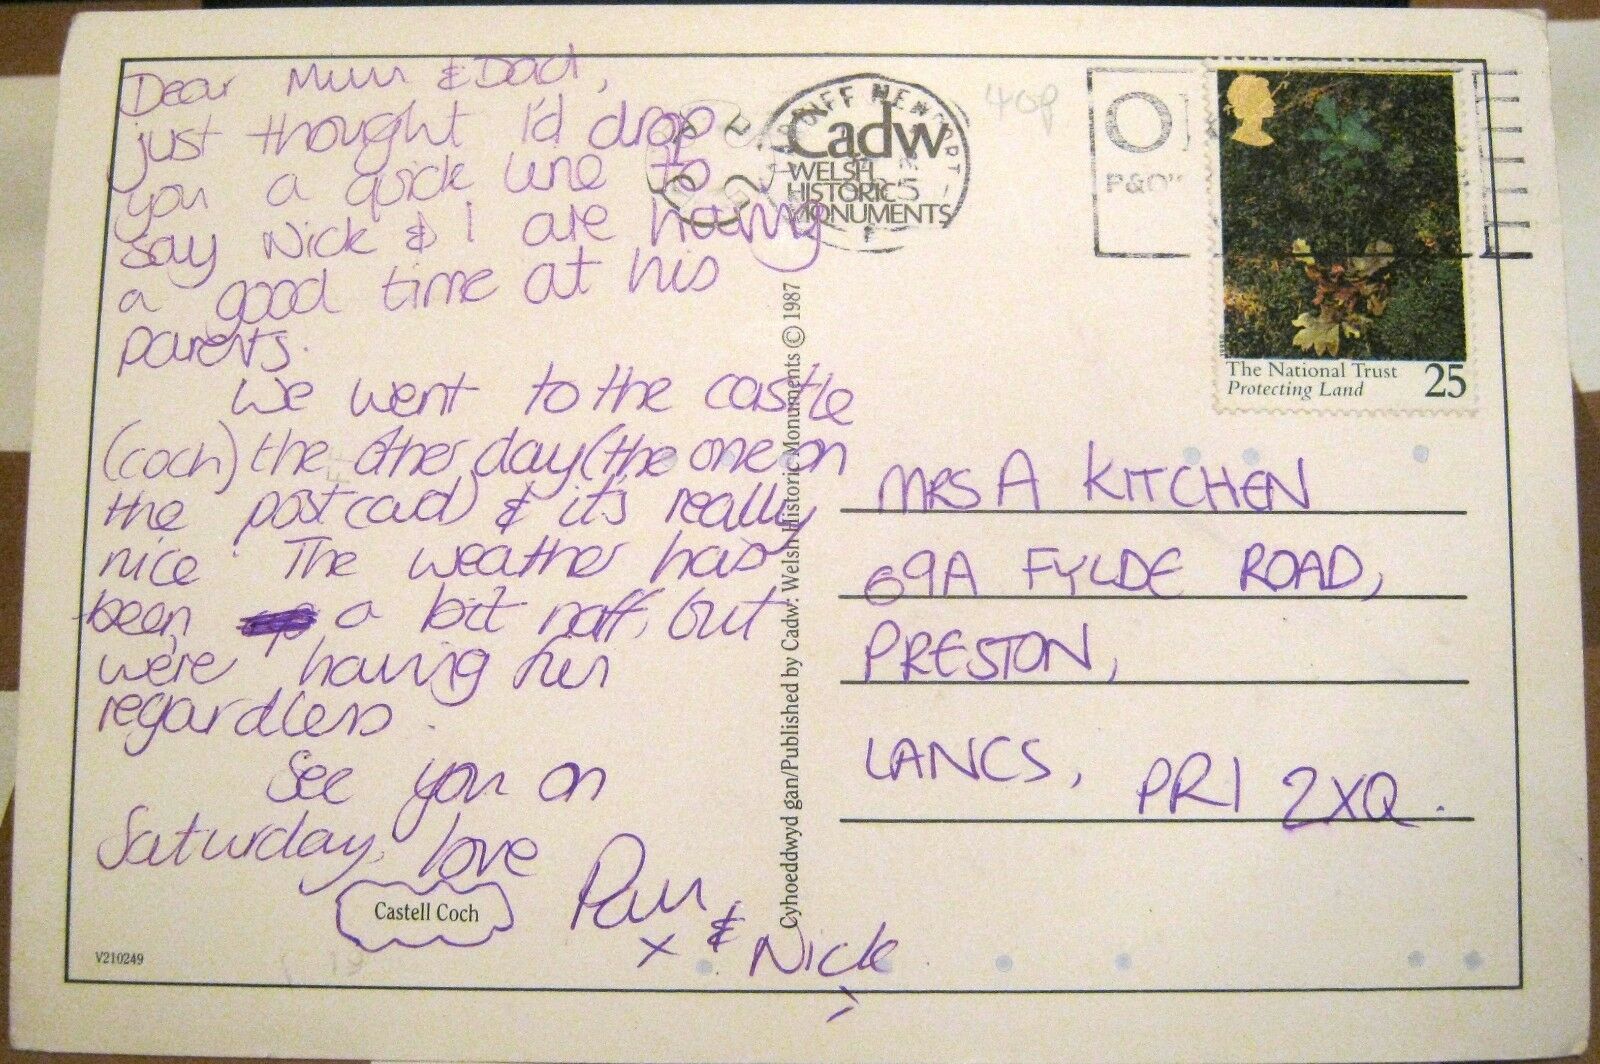 Dear Mum & Dad,
just thought I'd drop
you a quick line to
say Nick & I are having
a good time at his
parents.
We went to the castle
(coch) the other day (the one on
the postcard) & it's really
nice. The weather has
been a bit naff, but
were having fun
regardless.
See you on
Saturday, love
Pam
x & Nick
Castell Coch
V210249
Cyhoeddwyd gan/Published by Cadw: Welsh Historic Monuments © 1987
Cadw
WELSH
HISTORIC
MONUMENTS
CARDIFF NEWPORT
40p
P&O
The National Trust
Protecting Land 25
MRS A KITCHEN
69A FYLDE ROAD,
PRESTON,
LANCS, PR1 2XQ.